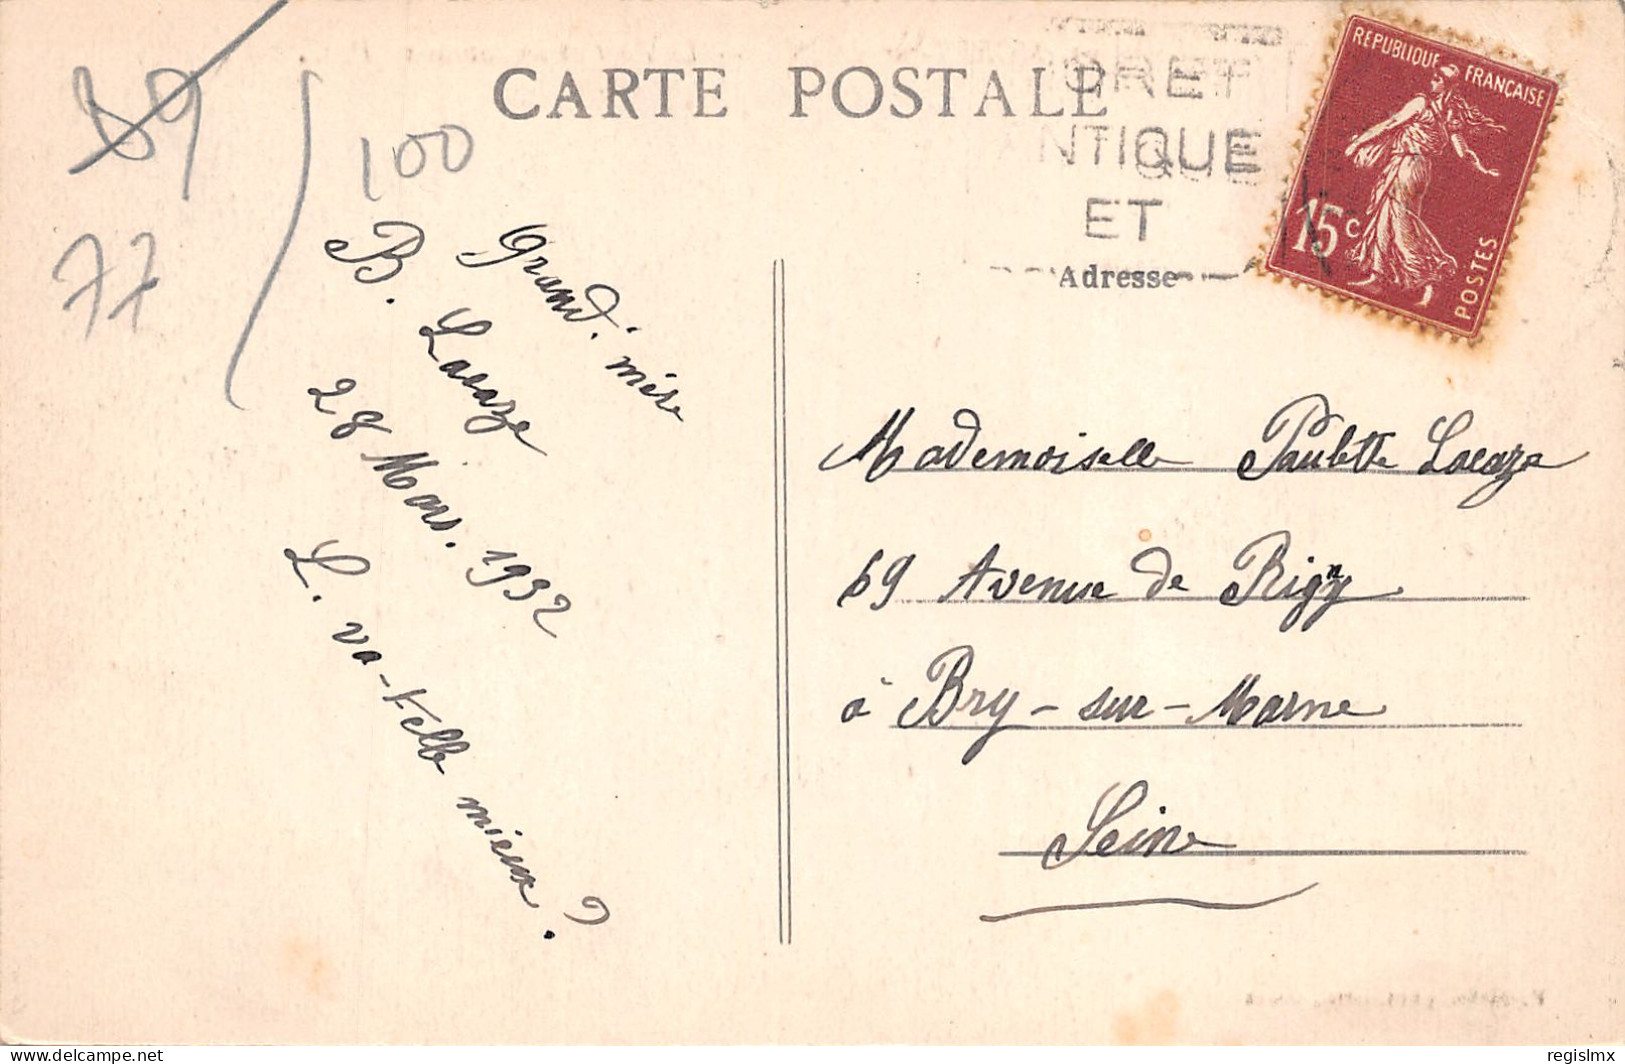 89
77
100
CARTE POSTALE
ORET
NTIQUE
ET
REPUBLIQUE FRANÇAISE
15c
POSTES
Adresse
Grand'mère
B. Lacaze
28 Mars. 1932
L. va-t-elle mieux ?
Mademoiselle Paulette Lacaze
69 Avenue de Rigny
à Bry-sur-Marne
Seine
delcampe.net
regislmx